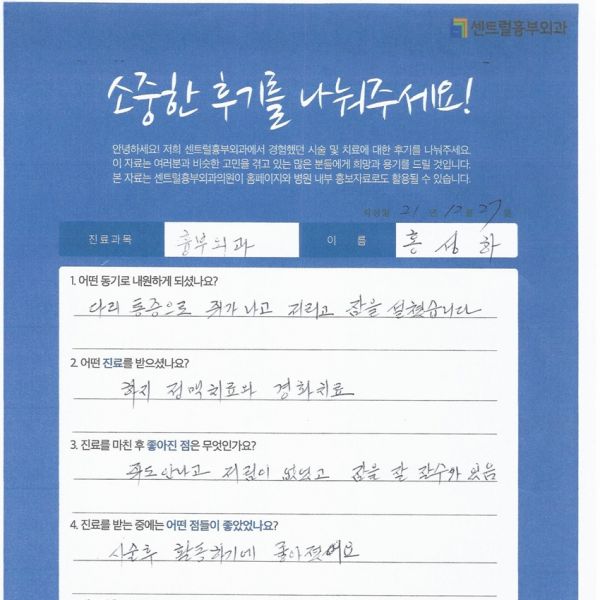 센트럴흉부외과
소중한 후기를 나눠주세요!
안녕하세요! 저희 센트럴흉부외과에서 경험했던 시술 및 치료에 대한 후기를 나눠주세요.
이 자료는 여러분과 비슷한 고민을 겪고 있는 많은 분들에게 희망과 용기를 드릴 것입니다.
본 자료는 센트럴흉부외과의원이 홈페이지와 병원 내부 홍보자료로도 활용될 수 있습니다.
작성일 21 년 12 월 27 일
진료과목 흉부외과 이 름 홍성하
1. 어떤 동기로 내원하게 되셨나요?
다리 통증으로 쥐가나고 저리고 잠을 설쳤습니다
2. 어떤 진료를 받으셨나요?
하지 정맥치료와 경화치료
3. 진료를 마친 후 좋아진 점은 무엇인가요?
쥐도안나고 저림이 없었고 잠을 잘 잘수가 있음
4. 진료를 받는 중에는 어떤 점들이 좋았었나요?
시술후 활동하기에 좋아졌어요